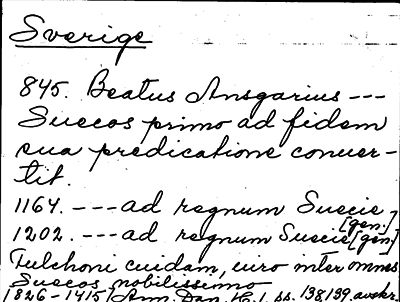 Sverige
845. Beatus Ansgarius ---
Suecos primo ad fidem
sua predicatione conuer-
tit.
1164. --- ad regnum Suecie
[gen.]
1202. --- ad regnum Suecie [gen]
Fulchoni cuidam, uiro inter omnes
Suecos nobilissimo
1826-1415 Ann. Dan. H. 1. ss. 138, 139, avskr.